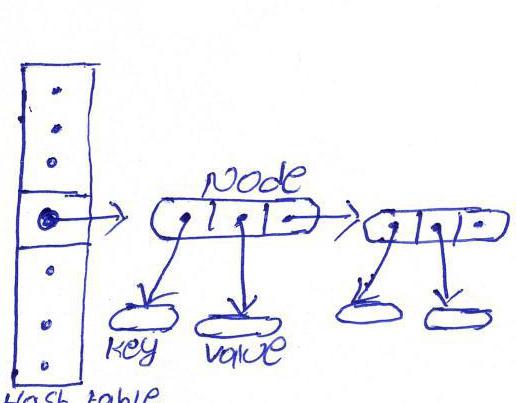 Node
key
value
Hash table